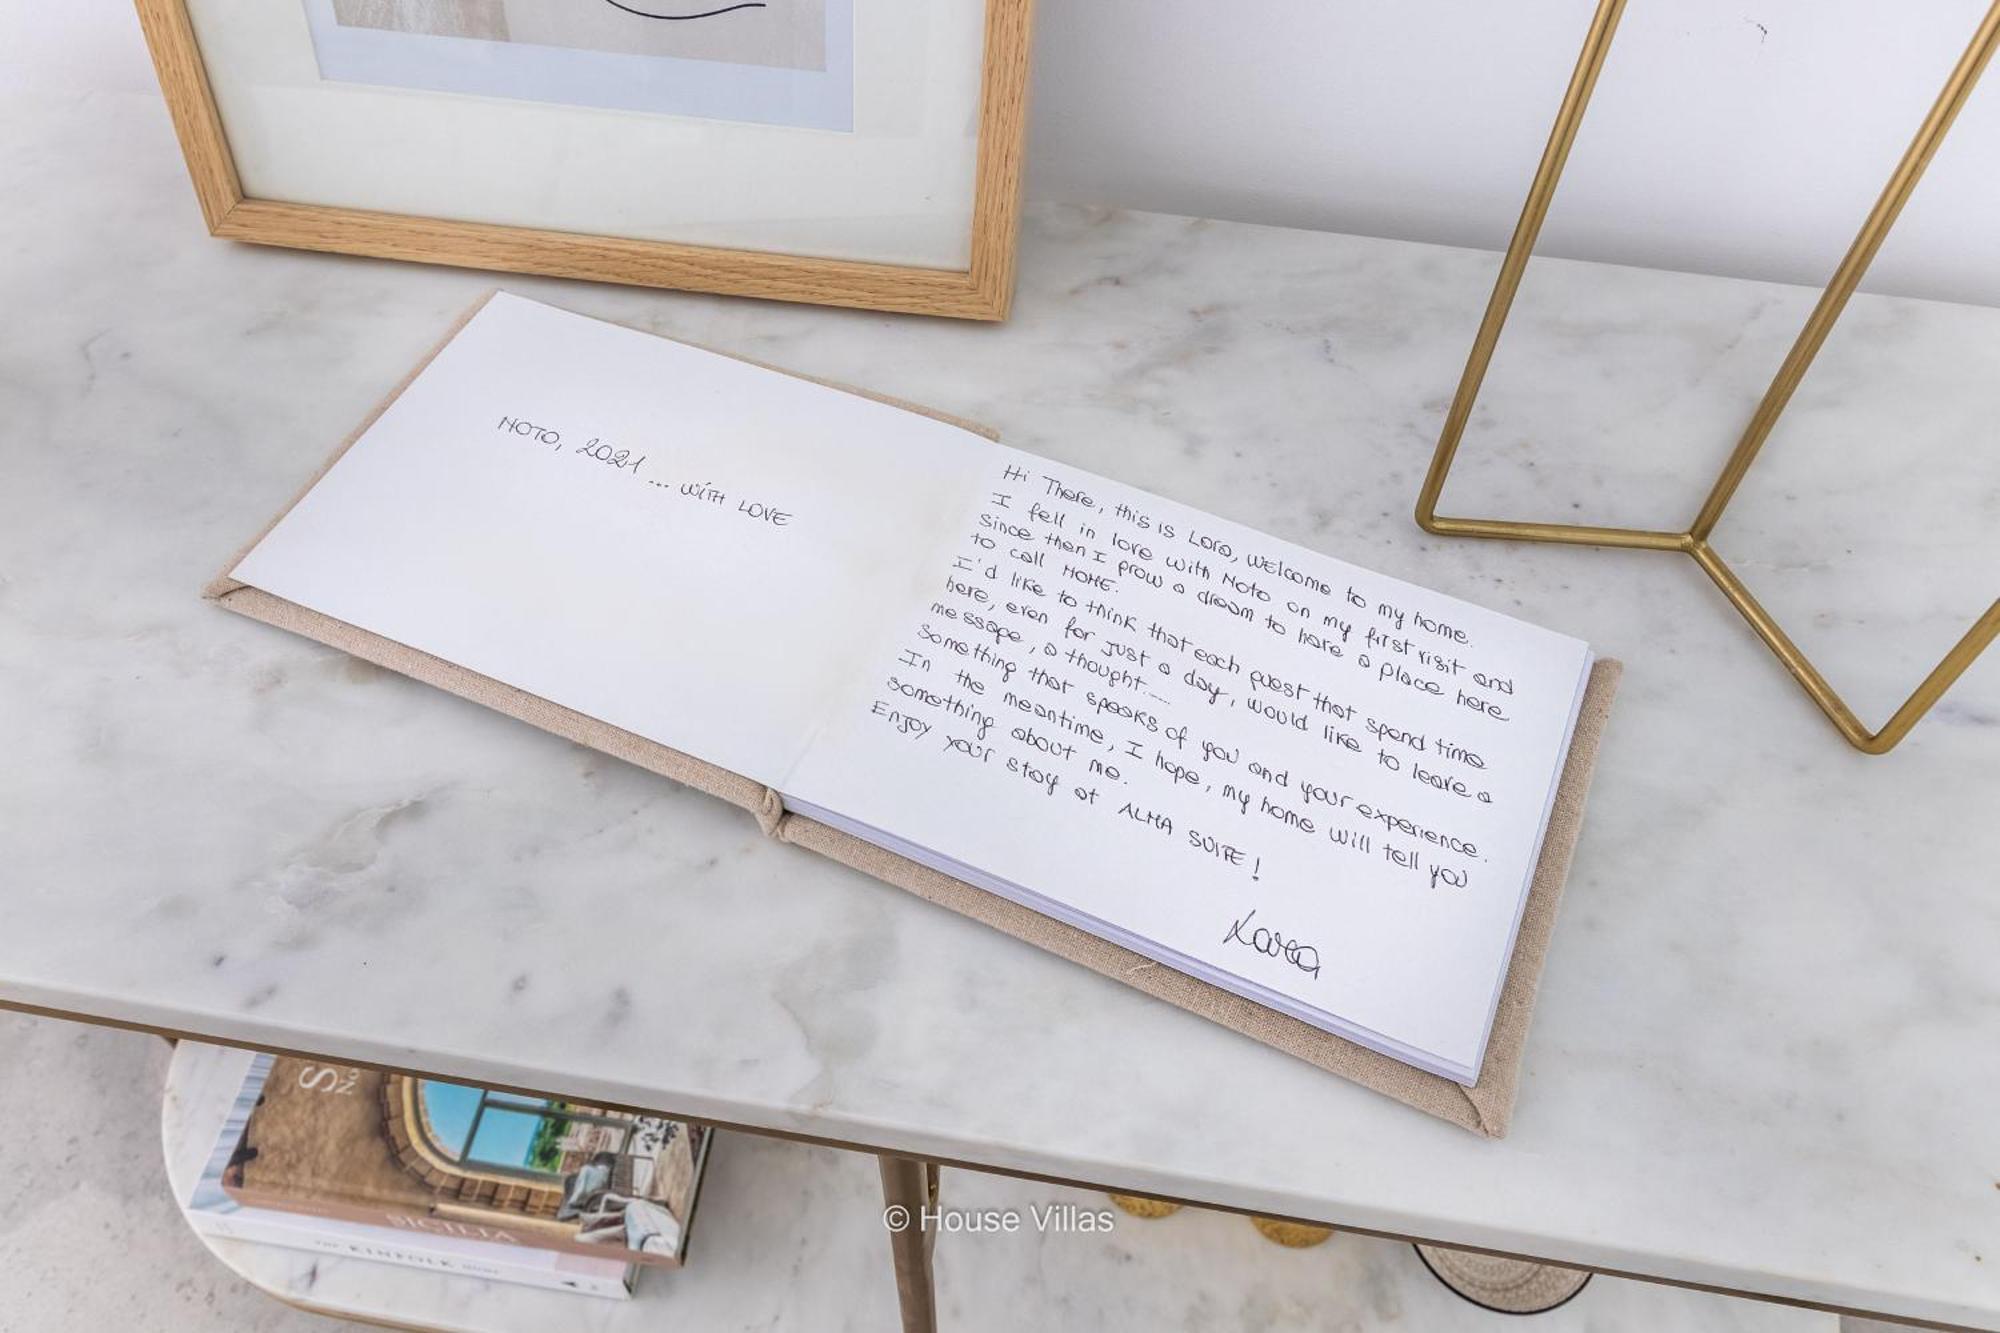 NOTO, 2021 ... WITH LOVE
Hi There, this is Lara, WELcome to my home.
I fell in love with Noto on my first visit and
since then I grow a dream to have a place here
to call HOME.
I'd like to think that each guest that spend time
here, even for just a day, would like to leave a
message, a thought....
Something that speaks of you and your experience.
In the meantime, I hope, my home will tell you
something about me.
Enjoy your stay at ALMA SUITE!
Lara
S
NO
SICILIA
THE KINFOLK HOME
© House Villas